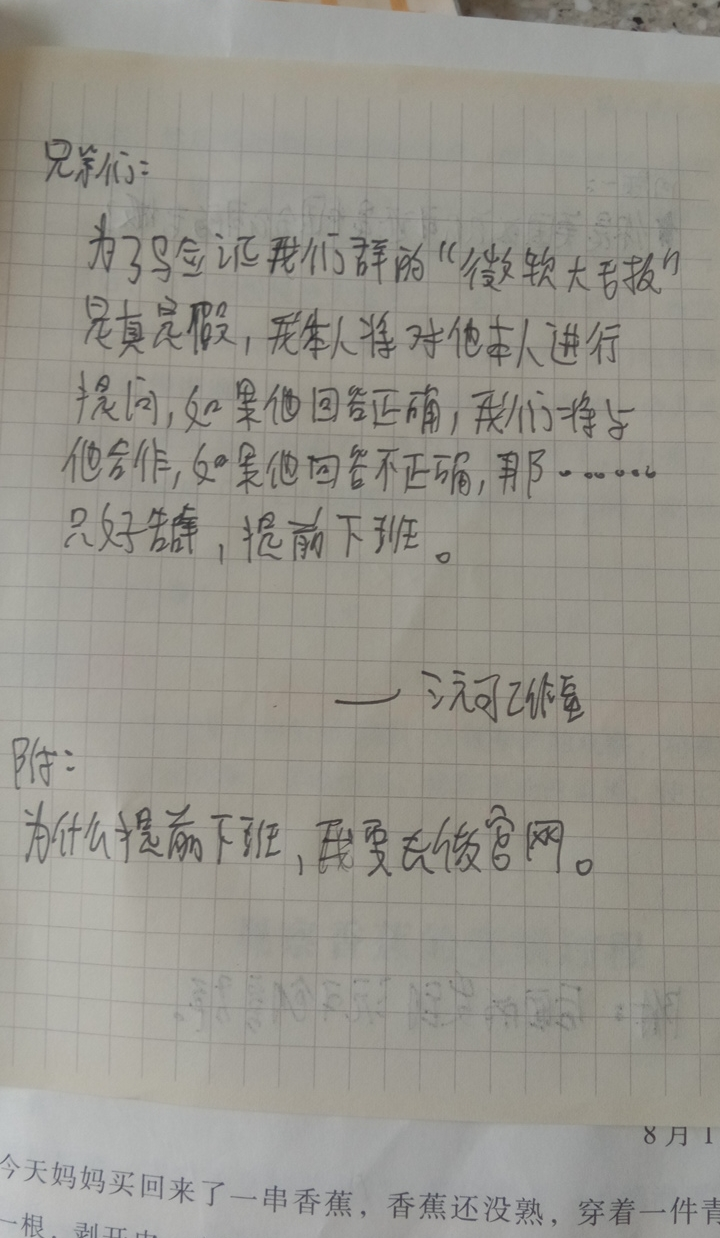 兄弟们：
为了验证我们群的“微软大老板”
是真是假，我本人将对他本人进行
提问，如果他回答正确，我们将与
他合作，如果他回答不正确，那……
只好告辞，提前下班。
工作室
附：
为什么提前下班，我要去做官网。
8月1
今天妈妈买回来了一串香蕉，香蕉还没熟，穿着一件青
一根，剥开皮